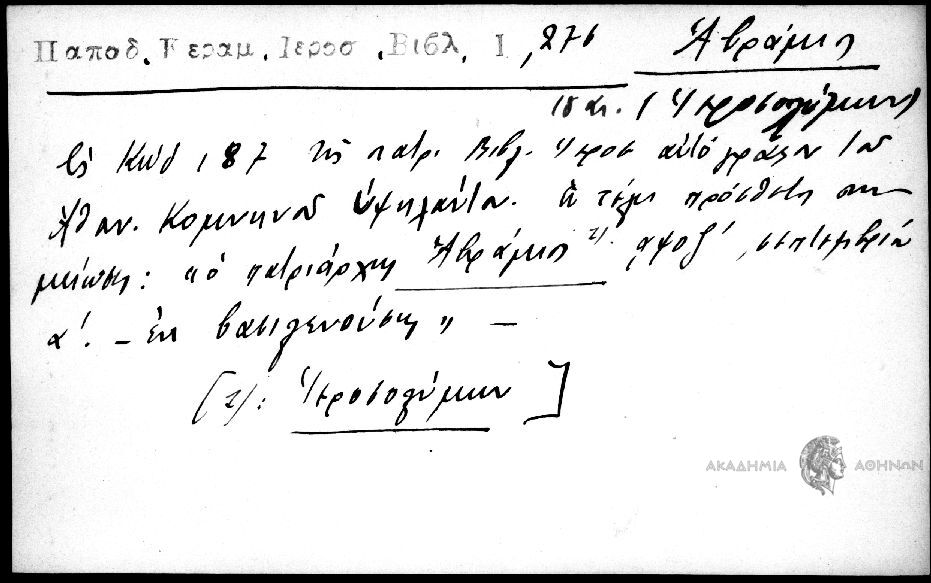 Παπαδ. Κεραμ. Ιεροσ. Βιβλ. Ι, 276 Ἀβράμιος
18 αι. (Ἱεροσολύμων)
Ἐς Κώδ. 187 τῆς πατρ. Βιβλ. Ἱεροσ. αὐτόγραφον τοῦ
Ἀθαν. Κομνηνοῦ Ὑψηλάντου. ἐν τέλει πρόσθετος ση-
μείωσις: "ὁ πατριάρχης Ἀβράμιος 1). αψοζ', σεπτεμβρίου
α'. – Ἐκ βασιλευούσης" –
[1): Ἱεροσολύμων]
ΑΚΑΔΗΜΙΑ ΑΘΗΝΩΝ